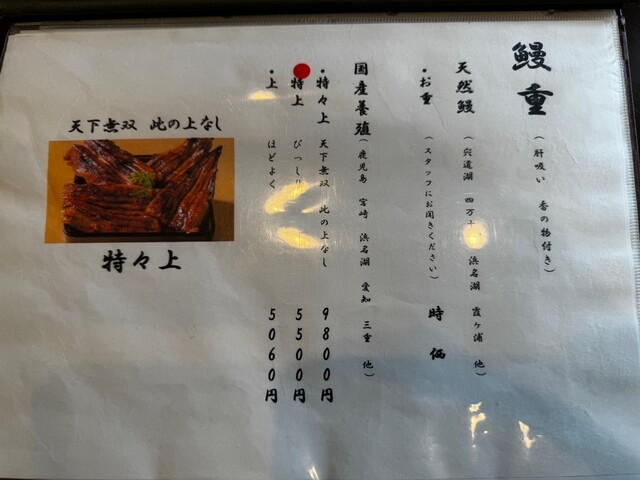 鰻重
(肝吸い 香の物付き)
天然鰻 (宍道湖 四万十 浜名湖 霞ヶ浦 他)
・お重 (スタッフにお聞きください) 時価
国産養殖 (鹿児島 宮崎 浜名湖 愛知 三重 他)
・特々上 天下無双 此の上なし 9800円
特上 びっしり 5500円
・上 ほどよく 5060円
天下無双 此の上なし
特々上